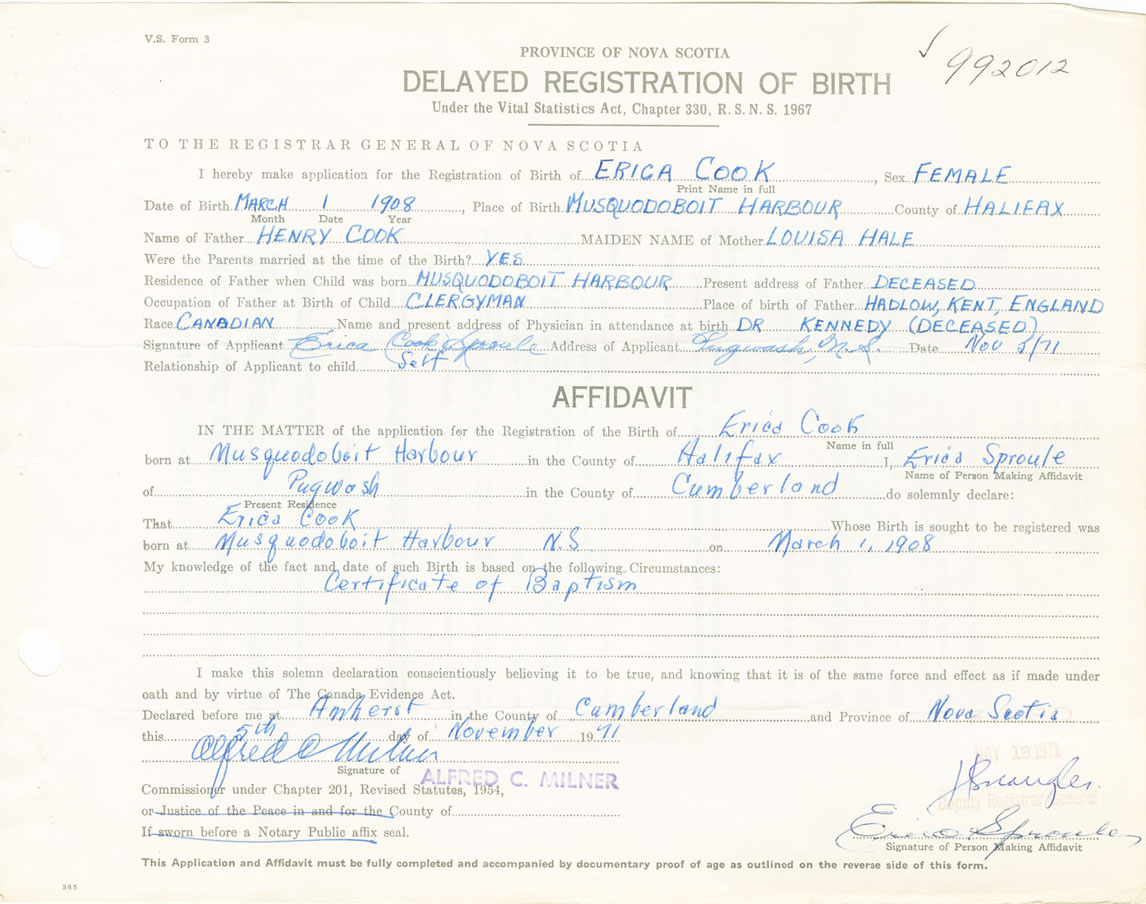 V.S. Form 3
992012
PROVINCE OF NOVA SCOTIA
DELAYED REGISTRATION OF BIRTH
Under the Vital Statistics Act, Chapter 330, R.S.N.S. 1967
TO THE REGISTRAR GENERAL OF NOVA SCOTIA
I hereby make application for the Registration of Birth of ERICA COOK, Sex FEMALE
Print Name in full
Date of Birth MARCH 1 1908, Place of Birth MUSQUODOBOIT HARBOUR County of HALIFAX
Month Date Year
Name of Father HENRY COOK MAIDEN NAME of Mother LOUISA HALE
Were the Parents married at the time of the Birth? YES
Residence of Father when Child was born MUSQUODOBOIT HARBOUR Present address of Father DECEASED
Occupation of Father at Birth of Child CLERGYMAN Place of birth of Father HADLOW, KENT, ENGLAND
Race CANADIAN Name and present address of Physician in attendance at birth DR KENNEDY (DECEASED)
Signature of Applicant Erica Cook Sproule Address of Applicant Pugwash, N.S. Date Nov 5/71
Relationship of Applicant to child Self
AFFIDAVIT
IN THE MATTER of the application for the Registration of the Birth of Erica Cook
Name in full
born at Musquodoboit Harbour in the County of Halifax I, Erica Sproule
Name of Person Making Affidavit
of Pugwash in the County of Cumberland do solemnly declare:
Present Residence
That Erica Cook Whose Birth is sought to be registered was
born at Musquodoboit Harbour N.S on March 1, 1908
My knowledge of the fact and date of such Birth is based on the following Circumstances:
Certificate of Baptism
I make this solemn declaration conscientiously believing it to be true, and knowing that it is of the same force and effect as if made under
oath and by virtue of The Canada Evidence Act.
Declared before me at Amherst in the County of Cumberland and Province of Nova Scotia
this 5th day of November 1971
NOV 18 1971
Alfred C Milner
Signature of ALFRED C. MILNER
Commissioner under Chapter 201, Revised Statutes, 1954,
Deputy Registrar General
or Justice of the Peace in and for the County of
Erica Sproule
If sworn before a Notary Public affix seal.
Signature of Person Making Affidavit
This Application and Affidavit must be fully completed and accompanied by documentary proof of age as outlined on the reverse side of this form.
385